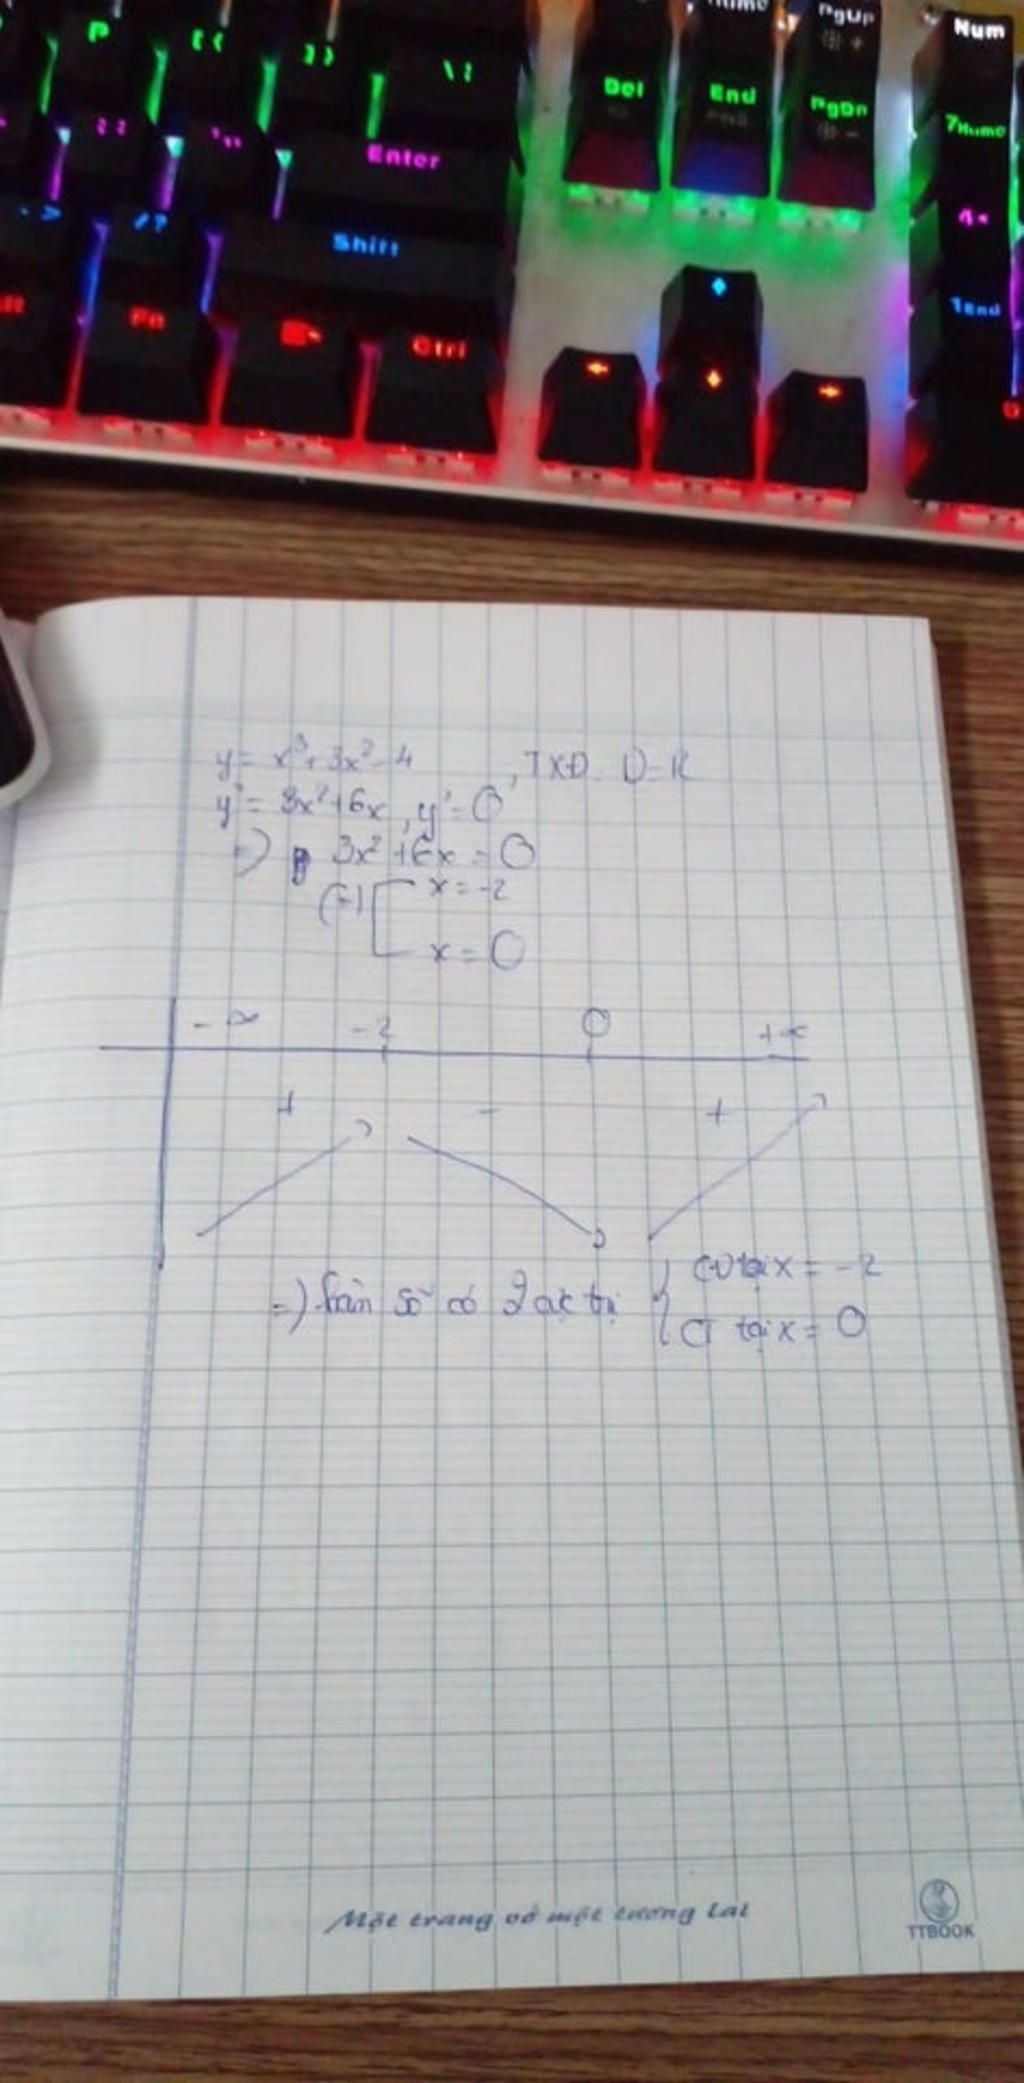 P [{ }] \|
Del End PgUp PgDn Num
7Home
:; '" Enter
4
.> /? Shift
1End
Fn Ctrl
0
y = x³ + 3x² - 4 , TXĐ D = R
y' = 3x² + 6x , y' = 0
=) 3x² + 6x = 0
(=) [ x = -2
x = 0
-∞ -2 0 +∞
+ - +
=) hàm số có 2 cực trị { CĐ tại x = -2
CT tại x = 0
Một trang vở một tương lai
TTBOOK